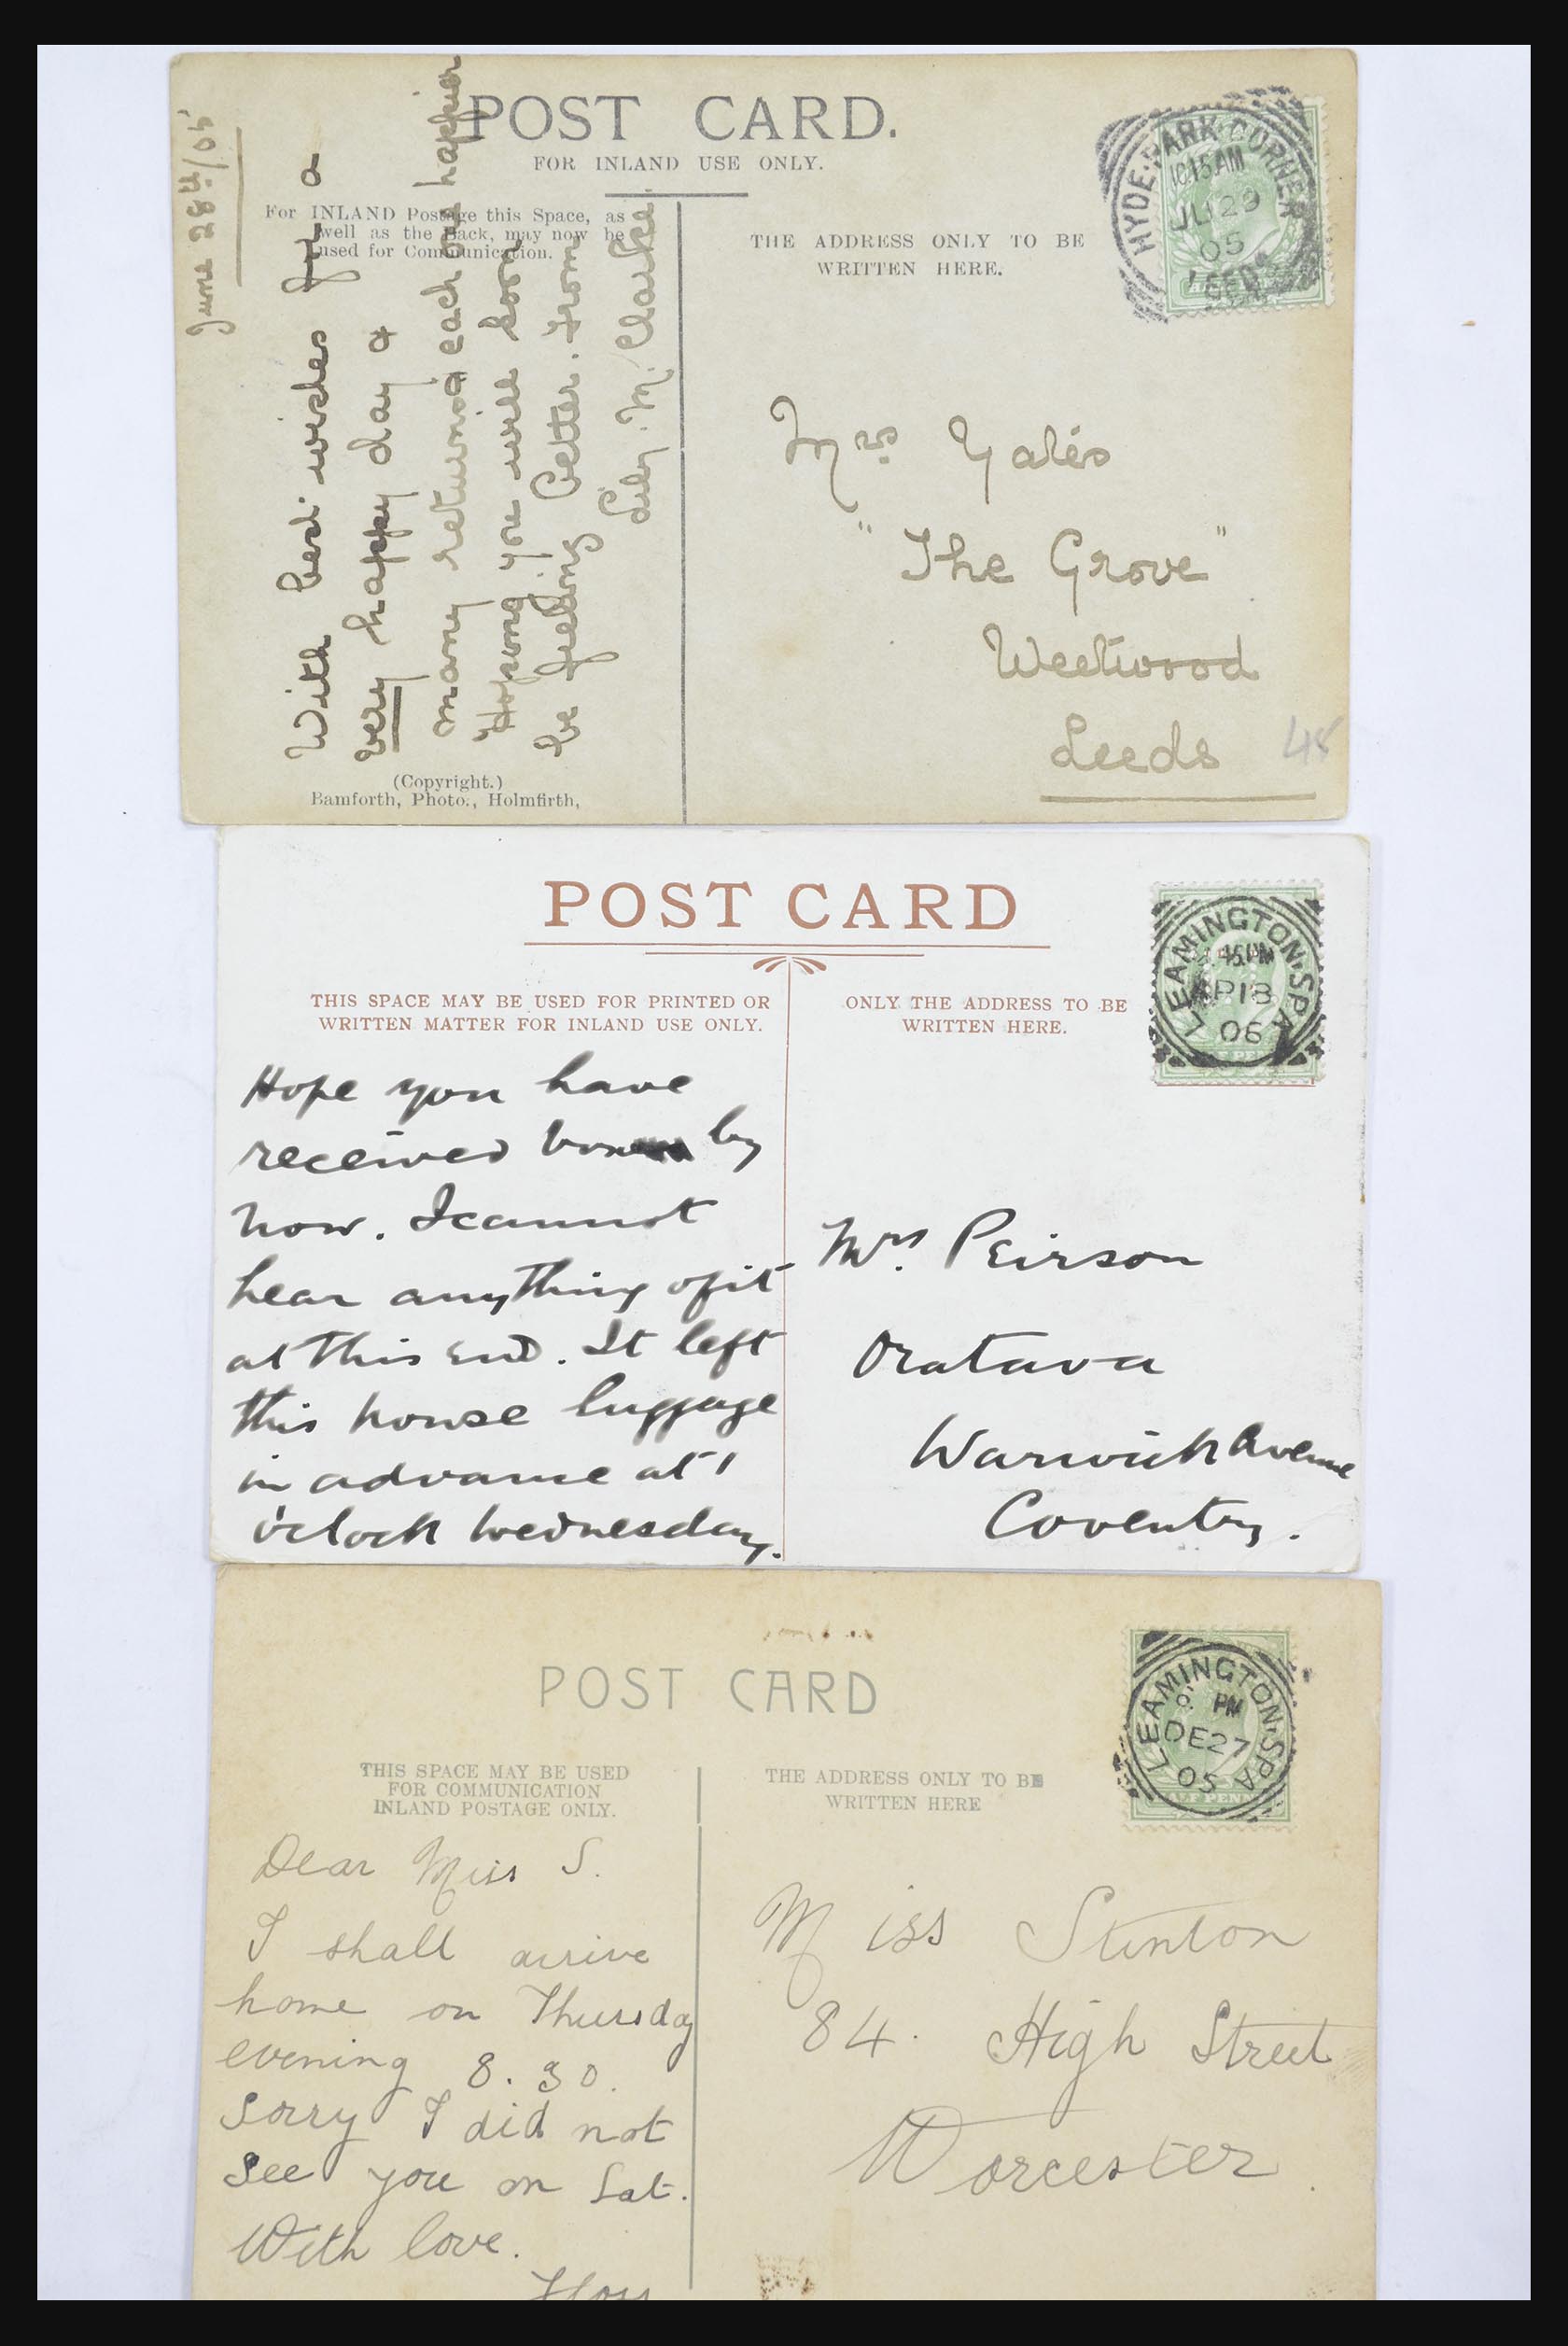 POST CARD.
FOR INLAND USE ONLY.
For INLAND Postage this Space, as
well as the Back, may now be
used for Communication.
THE ADDRESS ONLY TO BE
WRITTEN HERE.
HYDE·PARK·CORNER
10.15AM
JU 29
05
LEEDS
June 28th/05
With best wishes for a
very happy day &
many returns each one happier
Hoping you will soon
be feeling better. From
Lily. M. Clarke.
Mrs Yates
"The Grove"
Weetwood
Leeds
48
(Copyright.)
Bamforth, Photo., Holmfirth,
POST CARD
THIS SPACE MAY BE USED FOR PRINTED OR
WRITTEN MATTER FOR INLAND USE ONLY.
ONLY THE ADDRESS TO BE
WRITTEN HERE.
LEAMINGTON·SPA
45PM
AP18
06
Hope you have
received by
now. I cannot
hear anything of it
at this end. It left
this house luggage
in advance at 1
o'clock Wednesday.
Mrs. Peirson
Oratava
Warwick Avenue
Coventry.
POST CARD
THIS SPACE MAY BE USED
FOR COMMUNICATION
INLAND POSTAGE ONLY.
THE ADDRESS ONLY TO BE
WRITTEN HERE
LEAMINGTON·SPA
PM
DE27
05
HALF PENNY
Dear Miss S.
I shall arrive
home on Thursday
evening 8.30.
Sorry I did not
see you on Sat.
With love.
Floss
Miss Stinton
84. High Street
Worcester.